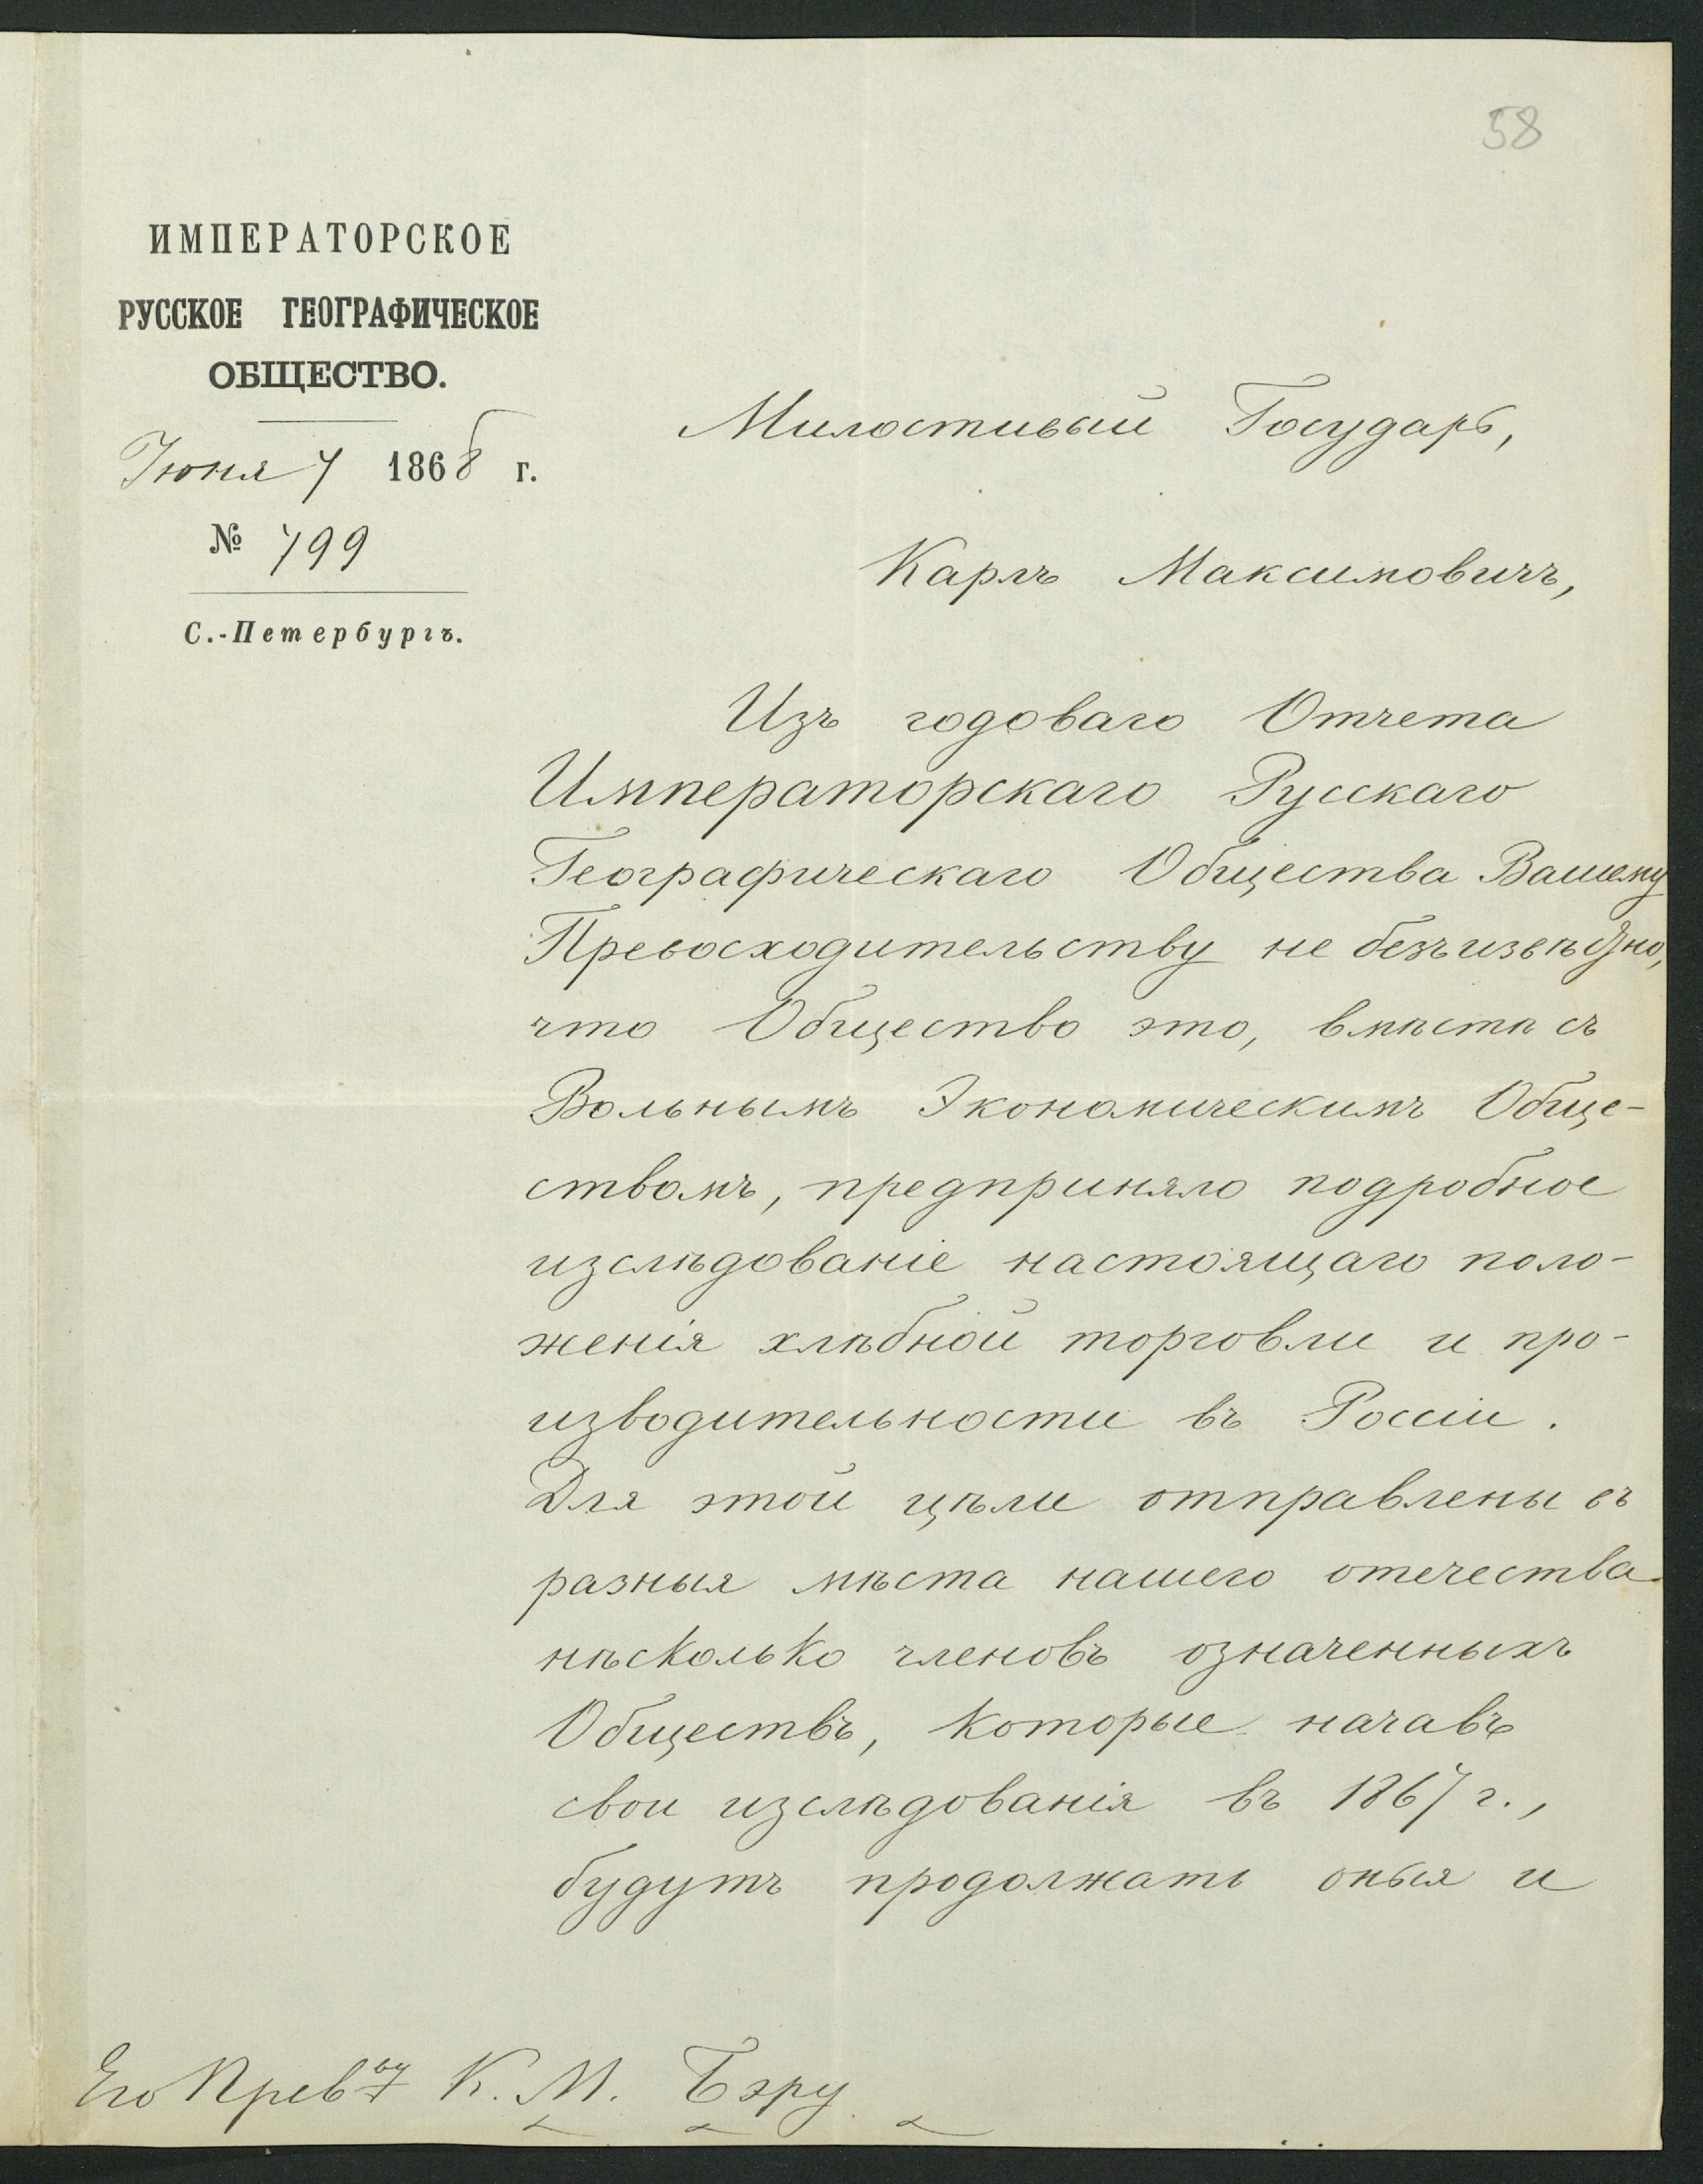 58
ИМПЕРАТОРСКОЕ
РУССКОЕ ГЕОГРАФИЧЕСКОЕ
ОБЩЕСТВО.
Іюня 7 1868 г.
№ 799
С.-Петербургъ.
Милостивый Государь,
Карлъ Максимовичъ,
Изъ годоваго Отчета
Императорскаго Русскаго
Географическаго Общества Вашему
Превосходительству не безъизвѣстно,
что Общество это, вмѣстѣ съ
Вольнымъ Экономическимъ Обще-
ствомъ, предприняло подробное
изслѣдованіе настоящаго поло-
женія хлѣбной торговли и про-
изводительности въ Россіи.
Для этой цѣли отправлены въ
разныя мѣста нашего отечества
нѣсколько членовъ означенныхъ
Обществъ, которые начавъ
свои изслѣдованія въ 1867 г.,
будутъ продолжать оныя и
Его Прев-ву К. М. Бэру